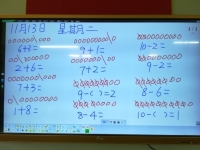 11月13日 星期二
6+4= 9+1= 10-2=
2+6= 7+2= 9-2=
7+3= 9-( )=2 8-6=
1+8= 8-4= 10-( )=1